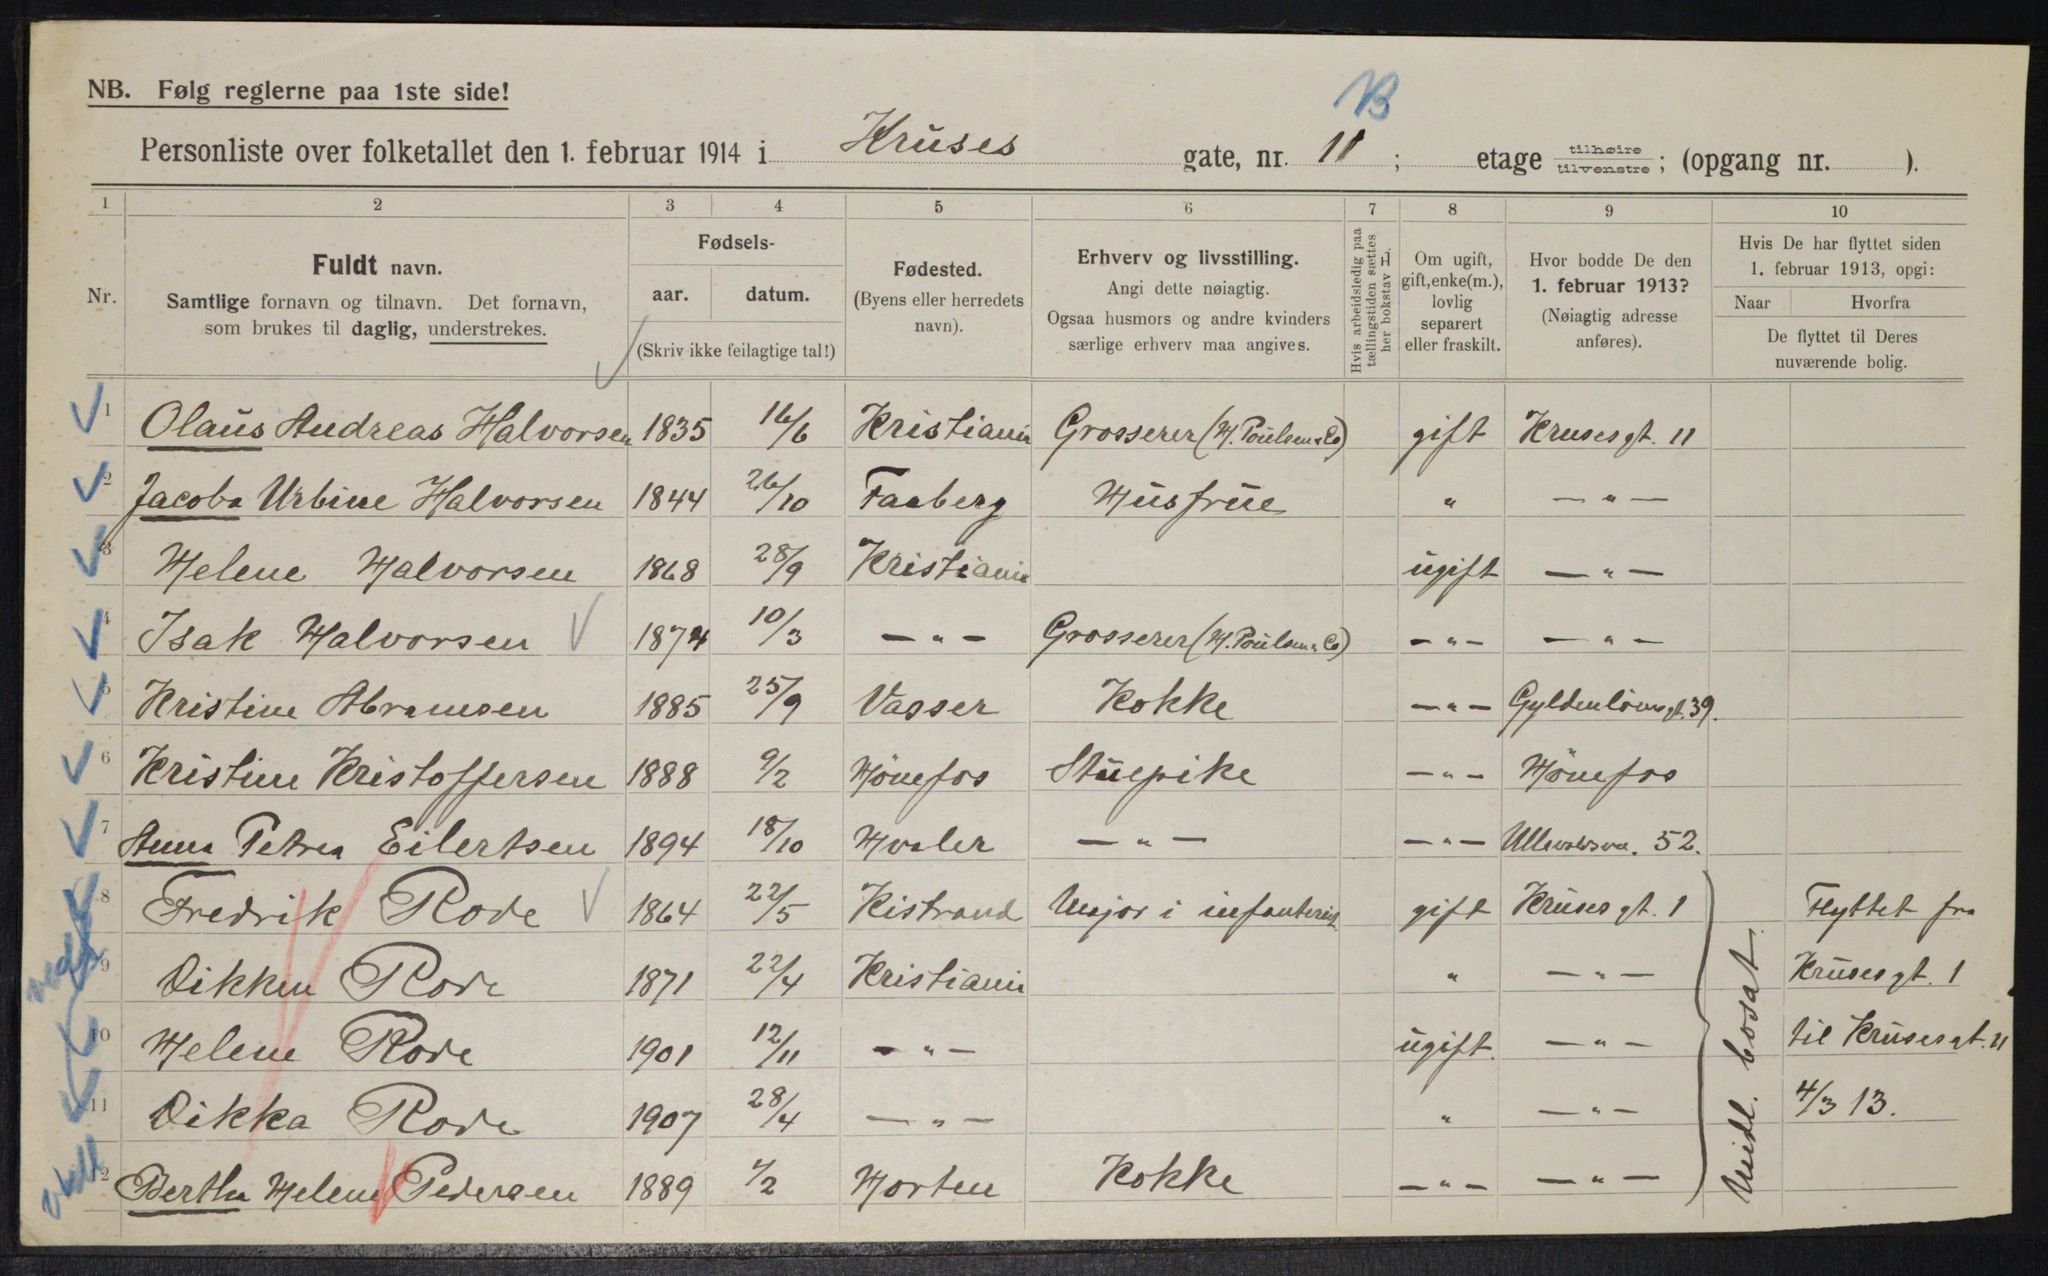 NB. Følg reglerne paa 1ste side!
B
Personliste over folketallet den 1. februar 1914 i Kruses gate, nr. 11 ; etage tilhøire tilvenstre ; (opgang nr. ).
1 2 3 4 5 6 7 8 9 10
Nr.
Fuldt navn.
Samtlige fornavn og tilnavn. Det fornavn,
som brukes til daglig, understrekes.
Fødsels-
aar. datum.
(Skriv ikke feilagtige tal!)
Fødested.
(Byens eller herredets
navn).
Erhverv og livsstilling.
Angi dette nøiagtig.
Ogsaa husmors og andre kvinders
særlige erhverv maa angives.
Hvis arbeidsledig paa
tællingstiden sættes
her bokstav H.
Om ugift,
gift, enke(m.),
lovlig
separert
eller fraskilt.
Hvor bodde De den
1. februar 1913?
(Nøiagtig adresse
anføres).
Hvis De har flyttet siden
1. februar 1913, opgi:
Naar Hvorfra
De flyttet til Deres
nuværende bolig.
1 Olaus Andreas Halvorsen 1835 16/6 Kristiania Grosserer (H. Poulsen & Co) gift Krusesgt. 11
2 Jacoba Urbine Halvorsen 1844 26/10 Faaberg Husfrue " — " —
3 Helene Halvorsen 1868 28/9 Kristiania ugift — " —
4 Isak Halvorsen 1874 10/3 — " — Grosserer (H. Poulsen & Co) — " — — " —
5 Kristine Abramsen 1885 25/9 Vasser Kokke — " — Gyldenløvesgt. 39.
6 Kristine Kristoffersen 1888 9/2 Hönefos Stuepike — " — Hönefos
7 Anna Petrea Eilertsen 1894 18/10 Hvaler — " — — " — Ullevoldsvn. 52.
8 Fredrik Rode 1864 22/5 Kistrand Major i infanteriet gift Kruses gt. 1 Flyttet fra
9 Dikken Rode 1871 22/4 Kristiania " — " — Krusesgt. 1
10 Helene Rode 1901 12/11 — " — ugift. — " — til Krusesgt. 11
11 Dikka Rode 1907 28/4 — " — " — " — 4/3 13.
12 Bertha Helene Pedersen 1889 /2 Horten Kokke — " — — " —
Midl. bosat.